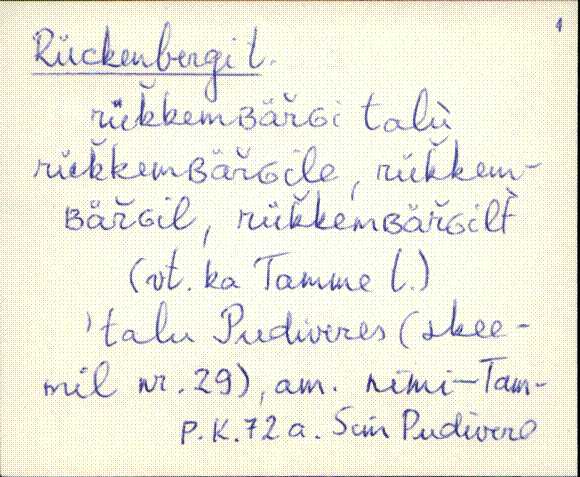 1
Rückenbergi t.
rük̆kemʙär̆ɢi talù
rük̆kemʙär̆ɢile, rük̆kem-
ʙär̆ɢil, rük̆kemʙär̆ɢilt̀
(vt. ka Tamme t.)
'talu Pudiveres (skee-
mil nr. 29), am. nimi-Tam-
P.K. 72 a. Sim Pudivere